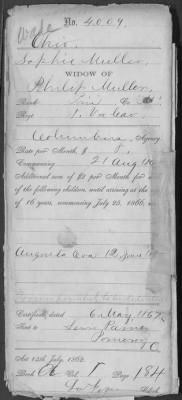 No. 4009
Ohio
Sophie Muller
WIDOW OF
Philip Muller
Rank Co.
Regt 1. Va Cav.
Columbus, Agency
Rate per Month, $ 8.
Commencing 21 Aug
Additional sum of $2 per Month for each
of the following children, until arriving at the age
of 16 years, commencing July 25, 1866.
Augusta Eva 12 June
Certificate dated 6 May 1867
Sent to Lewis Paine
Pomeroy
O
Act 14th July, 1862.
Book Vol. Page 184
Clerk.